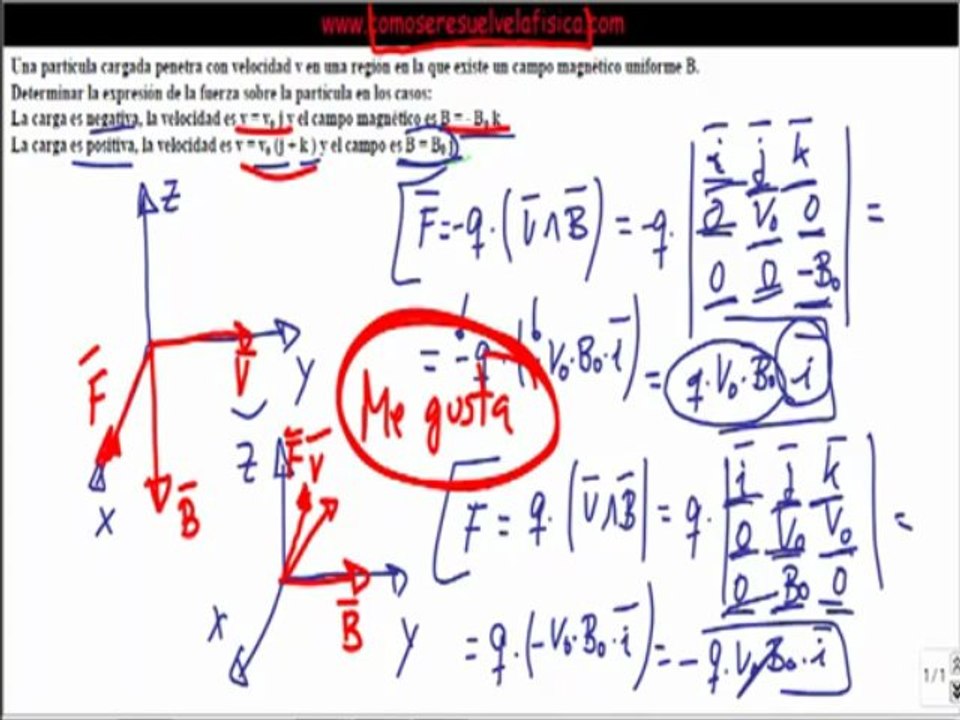 www.comoseresuelvelafisica.com
Una partícula cargada penetra con velocidad v en una región en la que existe un campo magnético uniforme B.
Determinar la expresión de la fuerza sobre la partícula en los casos:
La carga es negativa, la velocidad es v = v₀ j y el campo magnético es B = - B₀ k
La carga es positiva, la velocidad es v = v₀ (j + k ) y el campo es B = B₀ j
Z
F̅ = -q · (V̅ ∧ B̅) = -q · | i̅ j̅ k̅ | =
0 V₀ 0
0 0 -B₀
F̅ V̅ Y
X B̅
= -q · ( V₀ · B₀ · i̅ ) = q · V₀ · B₀ i̅
Me gusta
Z F̅ V̅
F = q · | V̅ ∧ B̅ | = q · | i̅ j̅ k̅ | =
0 V₀ V₀
0 B₀ 0
X B̅ Y
= q · (-V₀ · B₀ · i̅ ) = - q · V₀ B₀ · i̅
1/1